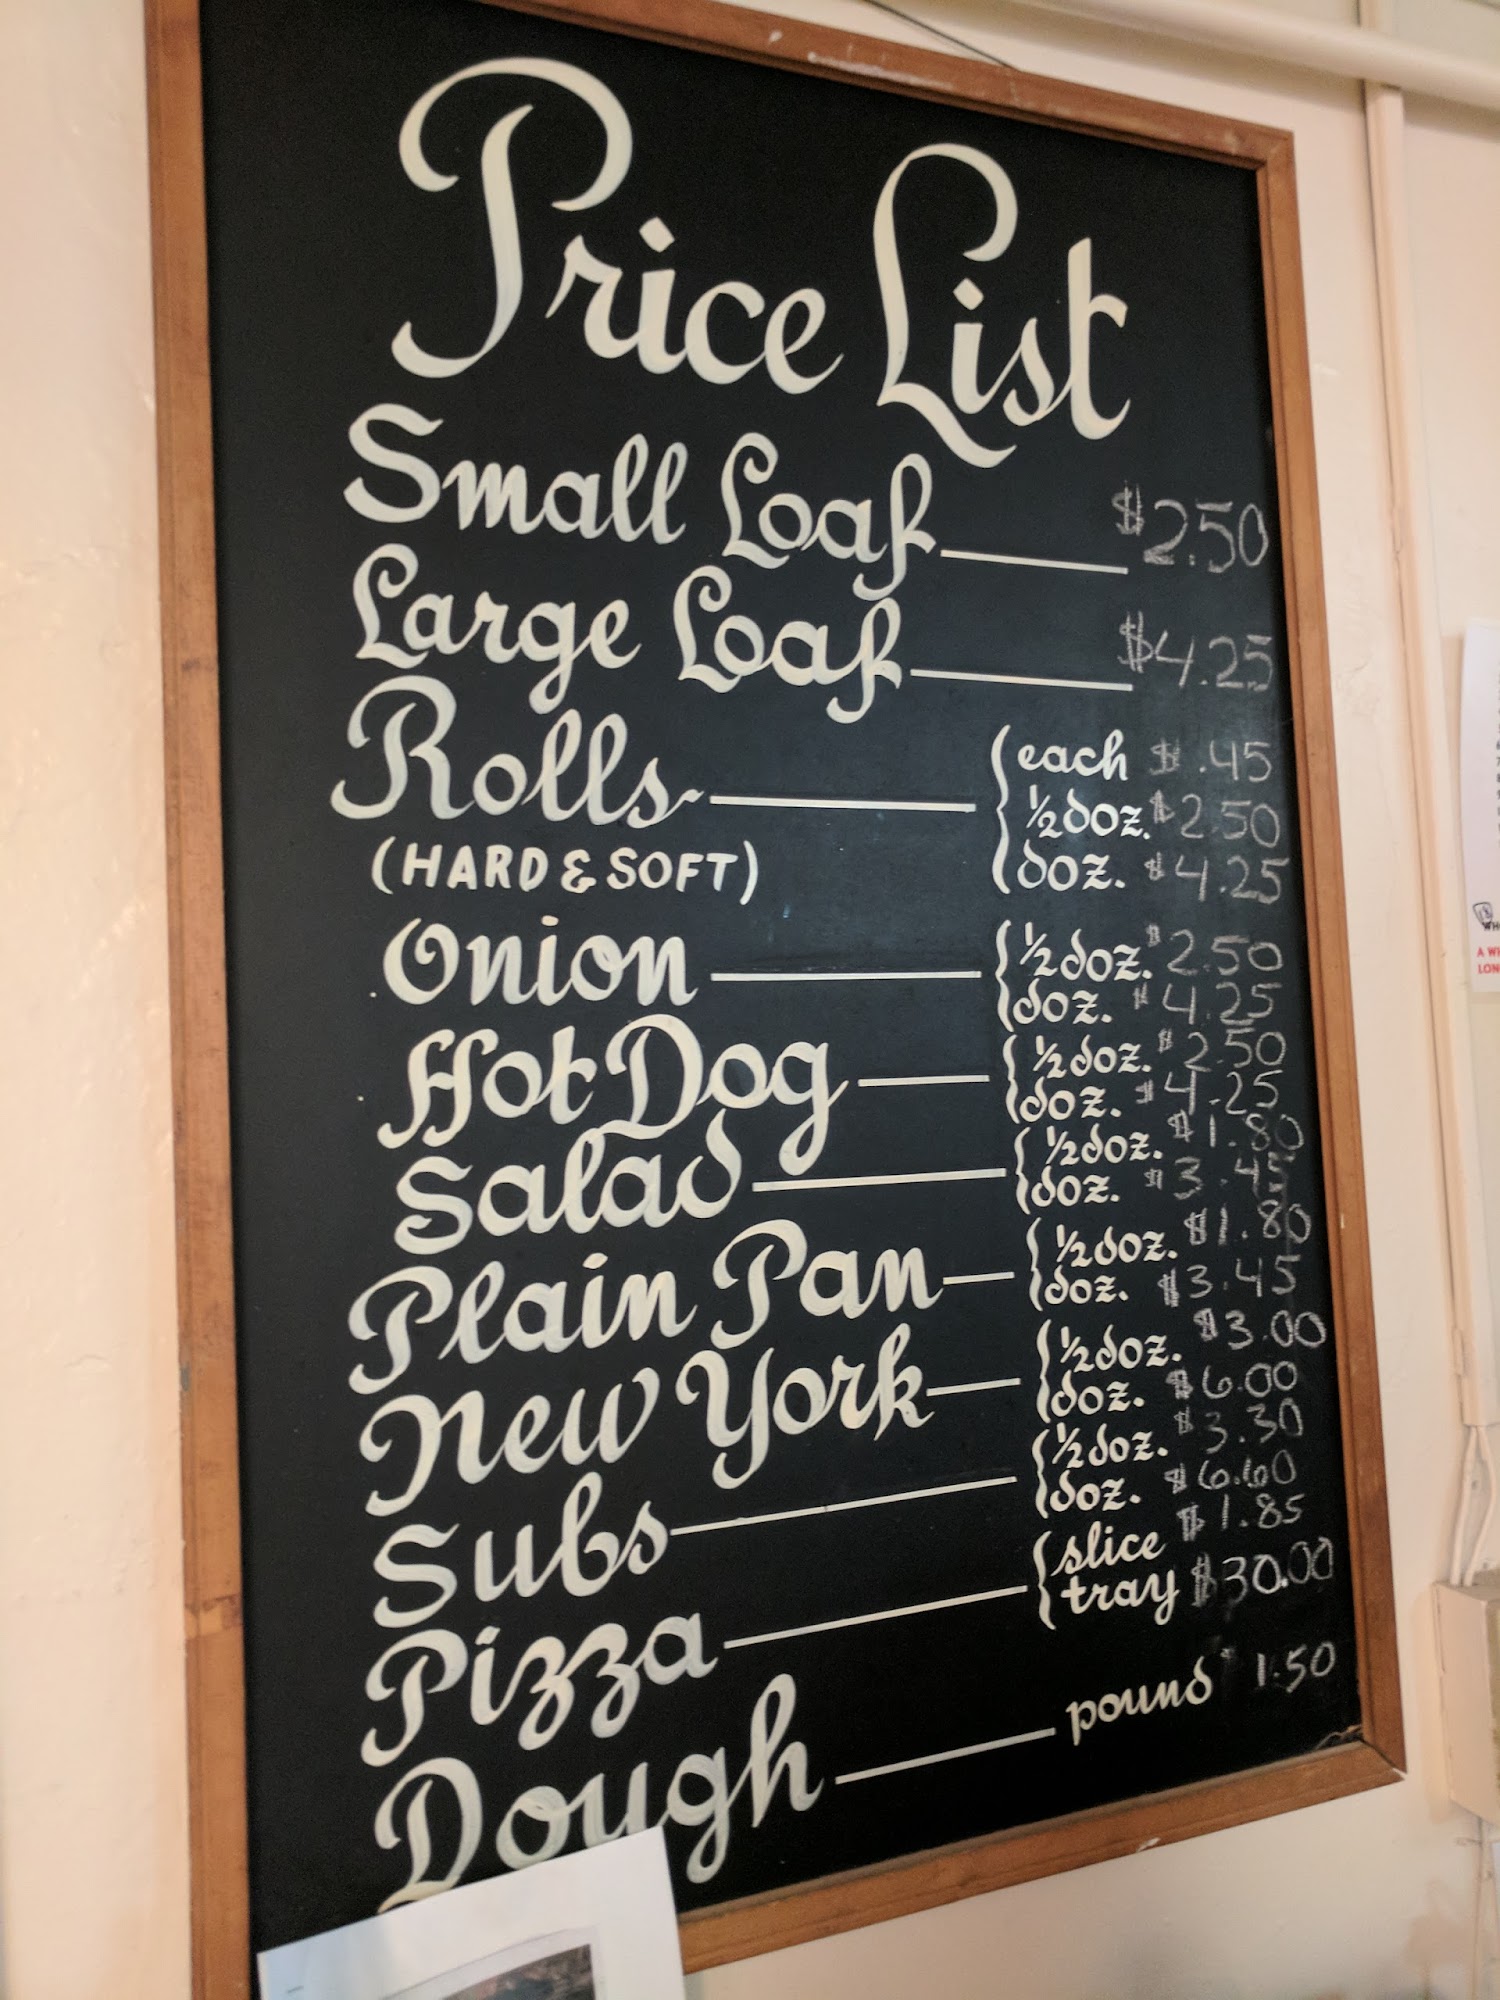 Price List
Small Loaf $2.50
Large Loaf $4.25
Rolls each $ .45
½ doz. $2.50
(HARD & SOFT) doz. $4.25
Onion ½ doz. $2.50
doz. $4.25
Hot Dog ½ doz. $2.50
doz. $4.25
Salad ½ doz. $1.80
doz. $3.45
Plain Pan ½ doz. $1.80
doz. $3.45
New York ½ doz. $3.00
doz. $6.00
Subs ½ doz. $3.30
doz. $6.60
Pizza slice $1.85
tray $30.00
Dough pound 1.50